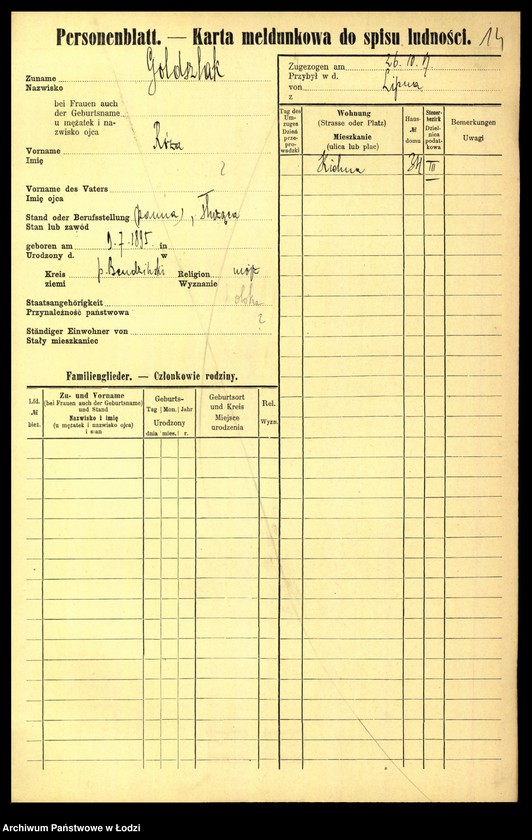 Personenblatt. — Karta meldunkowa do spisu ludności. 14
Zuname Goldszlak
Nazwisko
bei Frauen auch
der Geburtsname
u mężatek i na-
zwisko ojca
Vorname Róża
Imię
?
Vorname des Vaters
Imię ojca
Stand oder Berufsstellung (panna), służąca
Stan lub zawód
geboren am 9-7-1895 in
Urodzony d. w
Kreis p. Bendziński Religion mojż
ziemi Wyznanie
Staatsangehörigkeit
Przynależność państwowa
?
Ständiger Einwohner von
Stały mieszkaniec
Zugezogen am 26.10.17
Przybył w d.
von Lipna
z
Tag des
Um-
zuges
Dzień
prze-
prowa-
dzki
Wohnung
(Strasse oder Platz)
Mieszkanie
(ulica lub plac)
Haus-
№
domu
Steuer-
bezirk
Dziel-
nica
podat-
kowa
Bemerkungen
Uwagi
III
Familienglieder. — Członkowie rodziny.
Lfd.
№
bież.
Zu- und Vorname
(bei Frauen auch der Geburtsname)
und Stand
Nazwisko i imię
(u mężatek i nazwisko ojca)
i stan
Geburts-
Tag Mon. Jahr
Urodzony
dnia mies. r.
Geburtsort
und Kreis
Miejsce
urodzenia
Rel.
Wyzn.
Archiwum Państwowe w Łodzi